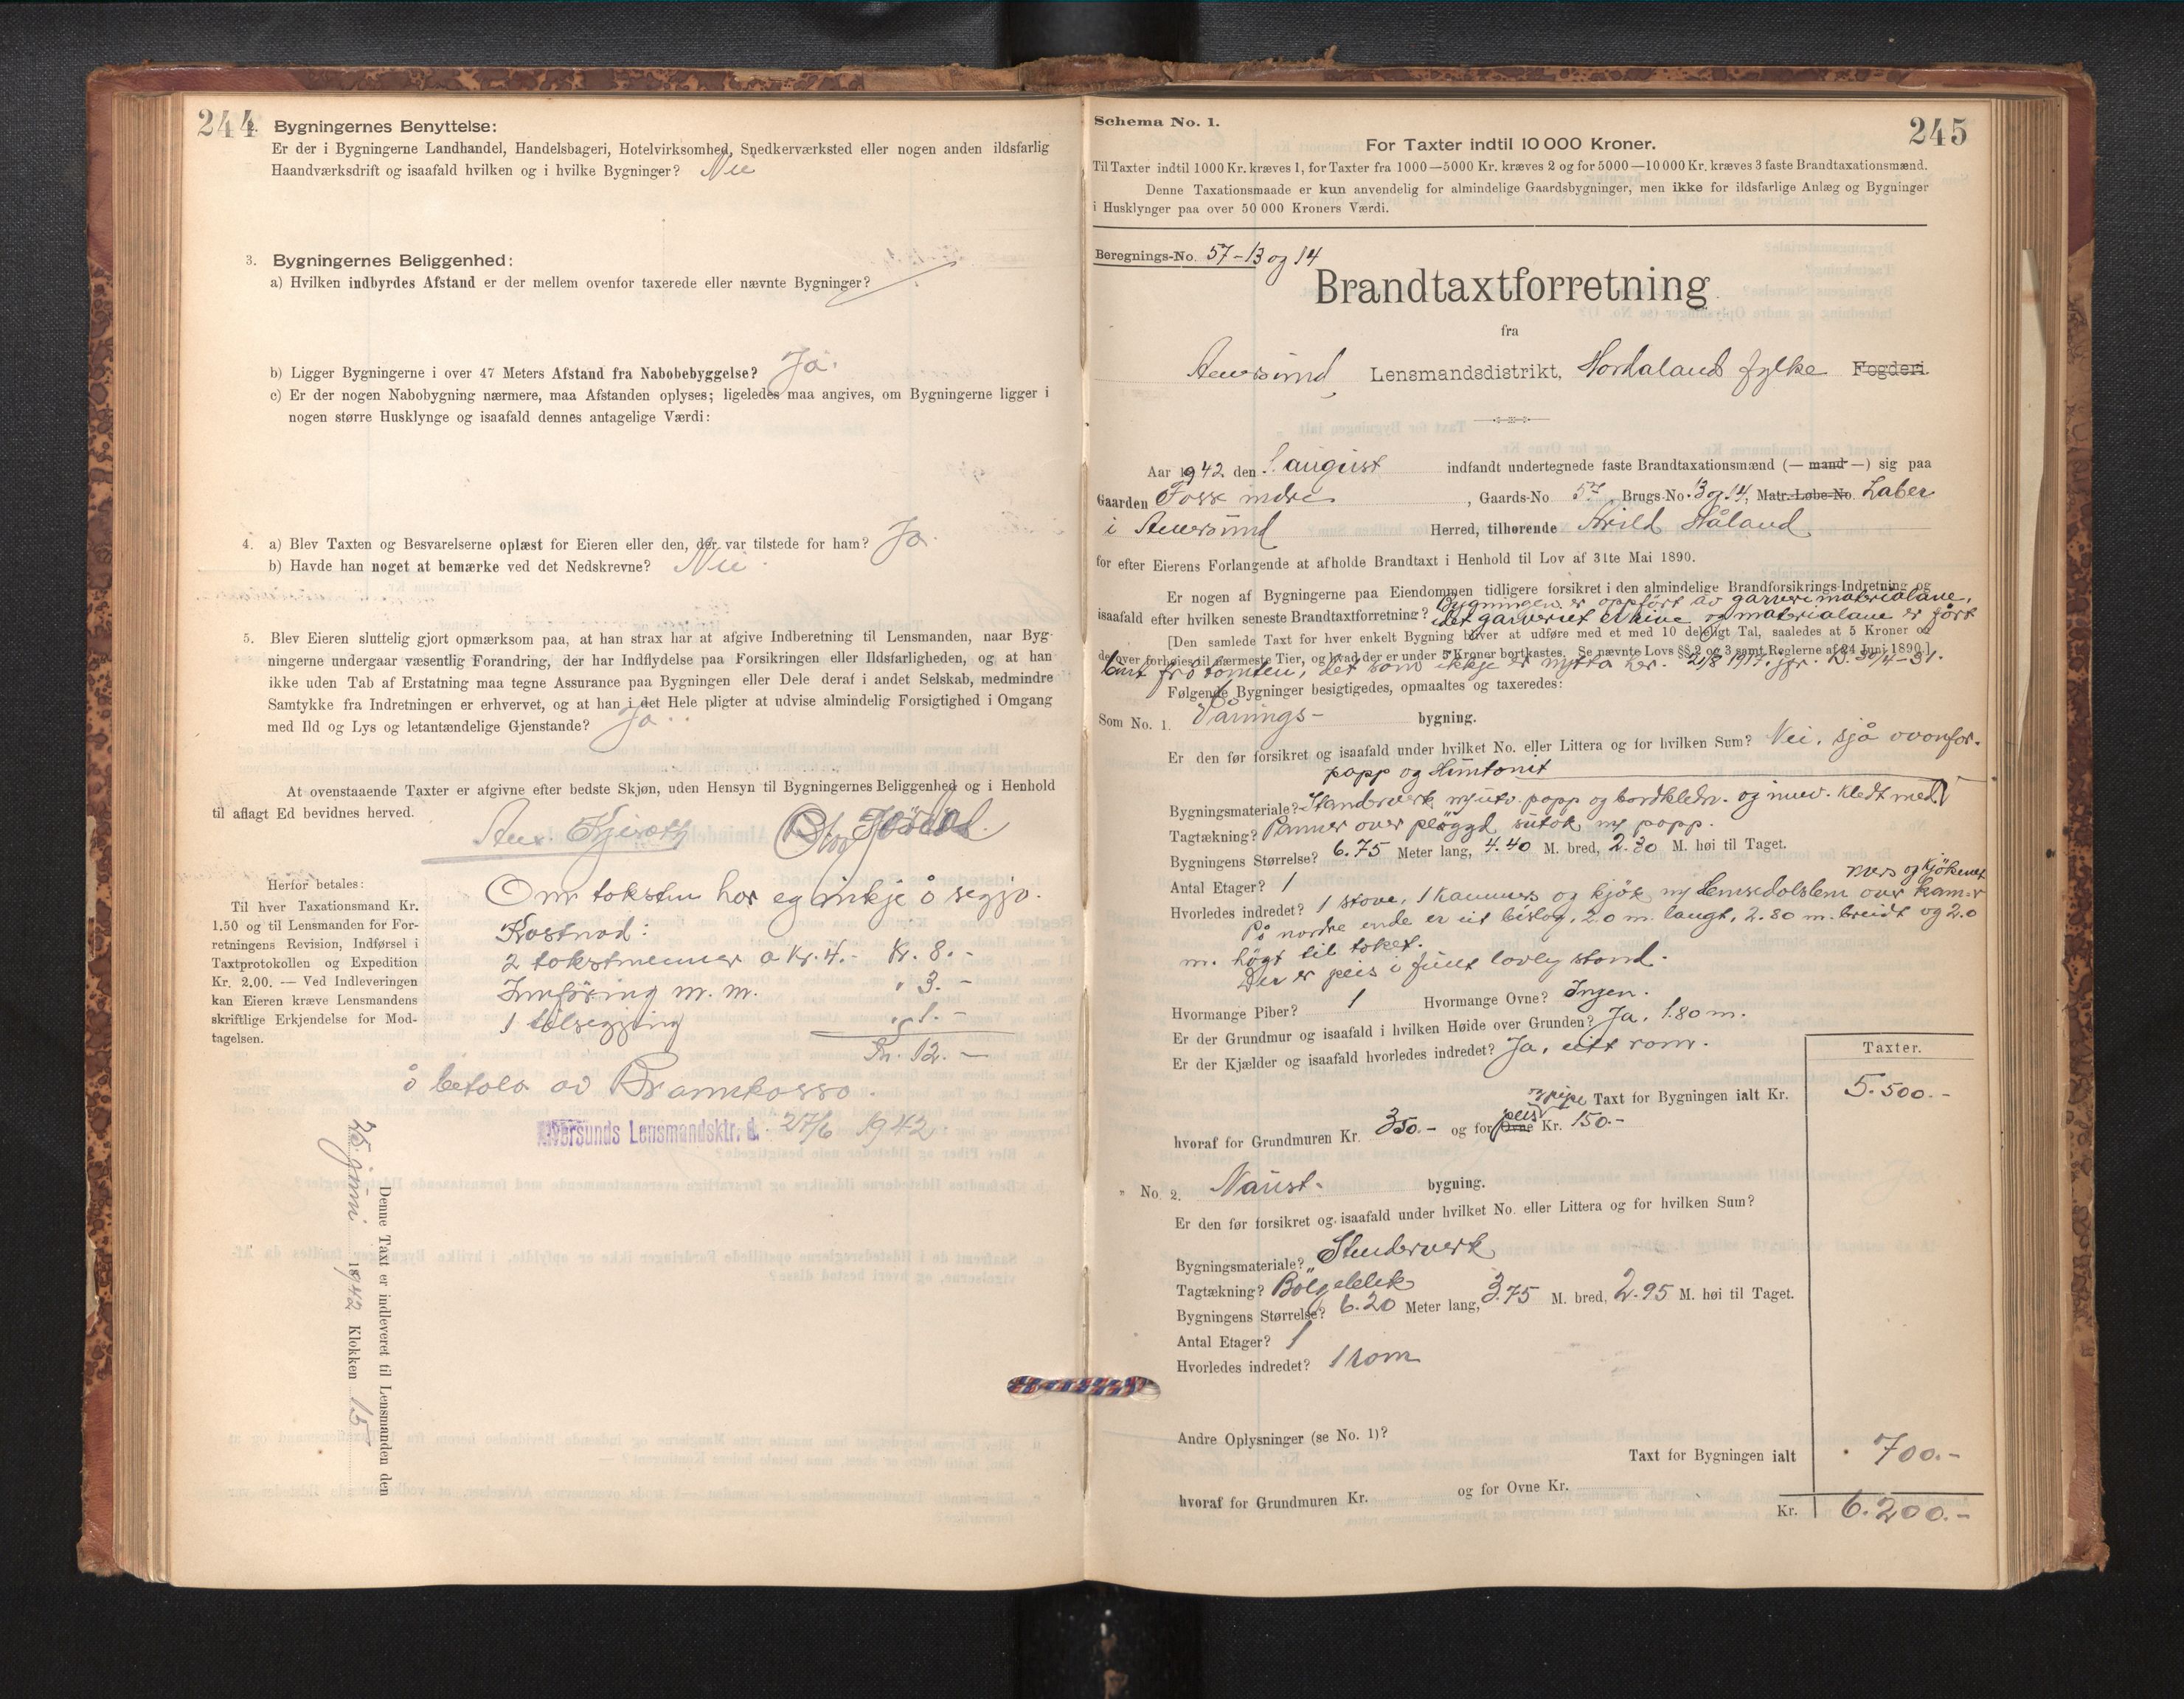 244
2. Bygningernes Benyttelse:
Er der i Bygningerne Landhandel, Handelsbageri, Hotelvirksomhed, Snedkerværksted eller nogen anden ildsfarlig
Haandværksdrift og isaafald hvilken og i hvilke Bygninger? Nei
3. Bygningernes Beliggenhed:
a) Hvilken indbyrdes Afstand er der mellem ovenfor taxerede eller nævnte Bygninger?
b) Ligger Bygningerne i over 47 Meters Afstand fra Nabobebyggelse? Ja.
c) Er der nogen Nabobygning nærmere, maa Afstanden oplyses; ligeledes maa angives, om Bygningerne ligger i
nogen større Husklynge og isaafald dennes antagelige Værdi:
4. a) Blev Taxten og Besvarelserne oplæst for Eieren eller den, der var tilstede for ham? Ja.
b) Havde han noget at bemærke ved det Nedskrevne? Nei.
5. Blev Eieren sluttelig gjort opmærksom paa, at han strax har at afgive Indberetning til Lensmanden, naar Byg-
ningerne undergaar væsentlig Forandring, der har Indflydelse paa Forsikringen eller Ildsfarligheden, og at han
ikke uden Tab af Erstatning maa tegne Assurance paa Bygningen eller Dele deraf i andet Selskab, medmindre
Samtykke fra Indretningen er erhvervet, og at han i det Hele pligter at udvise almindelig Forsigtighed i Omgang
med Ild og Lys og letantændelige Gjenstande? Ja.
At ovenstaaende Taxter er afgivne efter bedste Skjøn, uden Hensyn til Bygningernes Beliggenhed og i Henhold
til aflagt Ed bevidnes herved.
Herfor betales:
Til hver Taxationsmand Kr.
1.50 og til Lensmanden for For-
retningens Revision, Indførsel i
Taxtprotokollen og Expedition
Kr. 2.00. — Ved Indleveringen
kan Eieren kræve Lensmandens
skriftlige Erkjendelse for Mod-
tagelsen.
Om taksten har eg inkje å segja.
Kostnad:
2 takstmenner a Kr. 4.- Kr. 8.-
Innføring m. m. " 3.-
1 tilsegjing " 1.-
Kr. 12.-
å betala av Brannkassa.
Alversunds Lensmandsktr. d. 27/6 1942.
Denne Taxt er indleveret til Lensmanden den
25 juni 1942 Klokken 15
245
Schema No. 1.
For Taxter indtil 10 000 Kroner.
Til Taxter indtil 1000 Kr. kræves 1, for Taxter fra 1000—5000 Kr. kræves 2 og for 5000—10 000 Kr. kræves 3 faste Brandtaxationsmænd.
Denne Taxationsmaade er kun anvendelig for almindelige Gaardsbygninger, men ikke for ildsfarlige Anlæg og Bygninger
i Husklynger paa over 50 000 Kroners Værdi.
Beregnings-No. 57-13 og 14
Brandtaxtforretning
fra
Alversund Lensmandsdistrikt, Hordaland fylke Fogderi
Aar 1942 den 1. august indfandt undertegnede faste Brandtaxationsmænd (— mand —) sig paa
Gaarden Foss indre, Gaards-No 57, Brugs-No. 13 og 14, Matr.-Løbe-No. Laber
i Alversund Herred, tilhørende Arild Håland
for efter Eierens Forlangende at afholde Brandtaxt i Henhold til Lov af 31te Mai 1890.
Er nogen af Bygningerne paa Eiendommen tidligere forsikret i den almindelige Brandforsikrings-Indretning og
isaafald efter hvilken seneste Brandtaxtforretning? Bygningen er oppført av garverimaterialane,
det garveriet er rive og materialane er ført
[Den samlede Taxt for hver enkelt Bygning bliver at udføre med et med 10 deleligt Tal, saaledes at 5 Kroner og
derover forhøies til nærmeste Tier, og hvad der er under 5 Kroner bortkastes. Se nævnte Lovs §§ 2 og 3 samt Reglerne af 24 Juni 1890.]
burt frå tomten, det som ikkje er nytta her. 21/8 1917. jfr. B. 30/4-31.
Følgende Bygninger besigtigedes, opmaaltes og taxeredes:
Som No. 1. Vånings- bygning.
Er den før forsikret og isaafald under hvilket No. eller Littera og for hvilken Sum? Nei, sjå ovanfor.
papp og Huntonit
Bygningsmateriale? Standerverk m/utv. papp og bordkledn. og innv. kledt med
Tagtækning? Panner over pløggd sutak m/ papp.
Bygningens Størrelse? 6.75 Meter lang, 4.40 M. bred, 2.30 M. høi til Taget.
Antal Etager? 1
mers og kjøkenet
Hvorledes indredet? 1 stove, 1 kammers og kjøk m/ Hemsedalslem over kam-
På nordre ende er eit bislag, 2.0 m. langt, 2.80 m. breidt og 2.0
m. høgt til taket.
Der er peis i fullt lovleg stand.
Hvormange Piber? 1 Hvormange Ovne? Ingen.
Er der Grundmur og isaafald i hvilken Høide over Grunden? Ja, 1.80 m.
Er der Kjælder og isaafald hvorledes indredet? Ja, eitt rom.
Taxter.
m/pipe Taxt for Bygningen ialt Kr. 5.500.-
hvoraf for Grundmuren Kr. 350.- og for Ovne peis Kr. 150.-
" No. 2. Naust- bygning.
Er den før forsikret og isaafald under hvilket No. eller Littera og for hvilken Sum?
Bygningsmateriale? Stenderverk
Tagtækning? Bølgeblik
Bygningens Størrelse? 6.20 Meter lang, 3.75 M. bred, 2.95 M. høi til Taget.
Antal Etager? 1
Hvorledes indredet? 1 rom
Andre Oplysninger (se No. 1)?
Taxt for Bygningen ialt 700.-
hvoraf for Grundmuren Kr. og for Ovne Kr.
Kr. 6.200.-